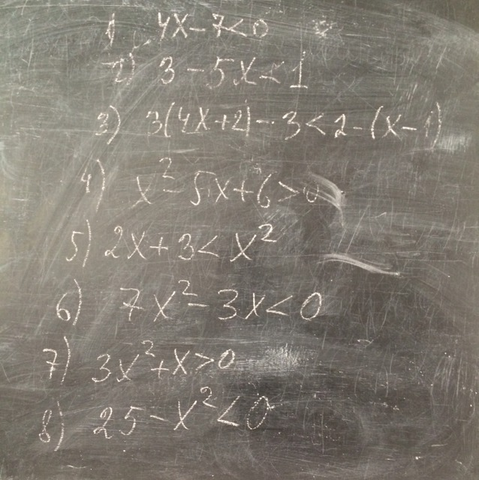 1) 4x-7<0
2) 3-5x<1
3) 3(4x+2)-3<2-(x-1)
4) x²-5x+6>0
5) 2x+3<x²
6) 7x²-3x<0
7) 3x²+x>0
8) 25-x²<0